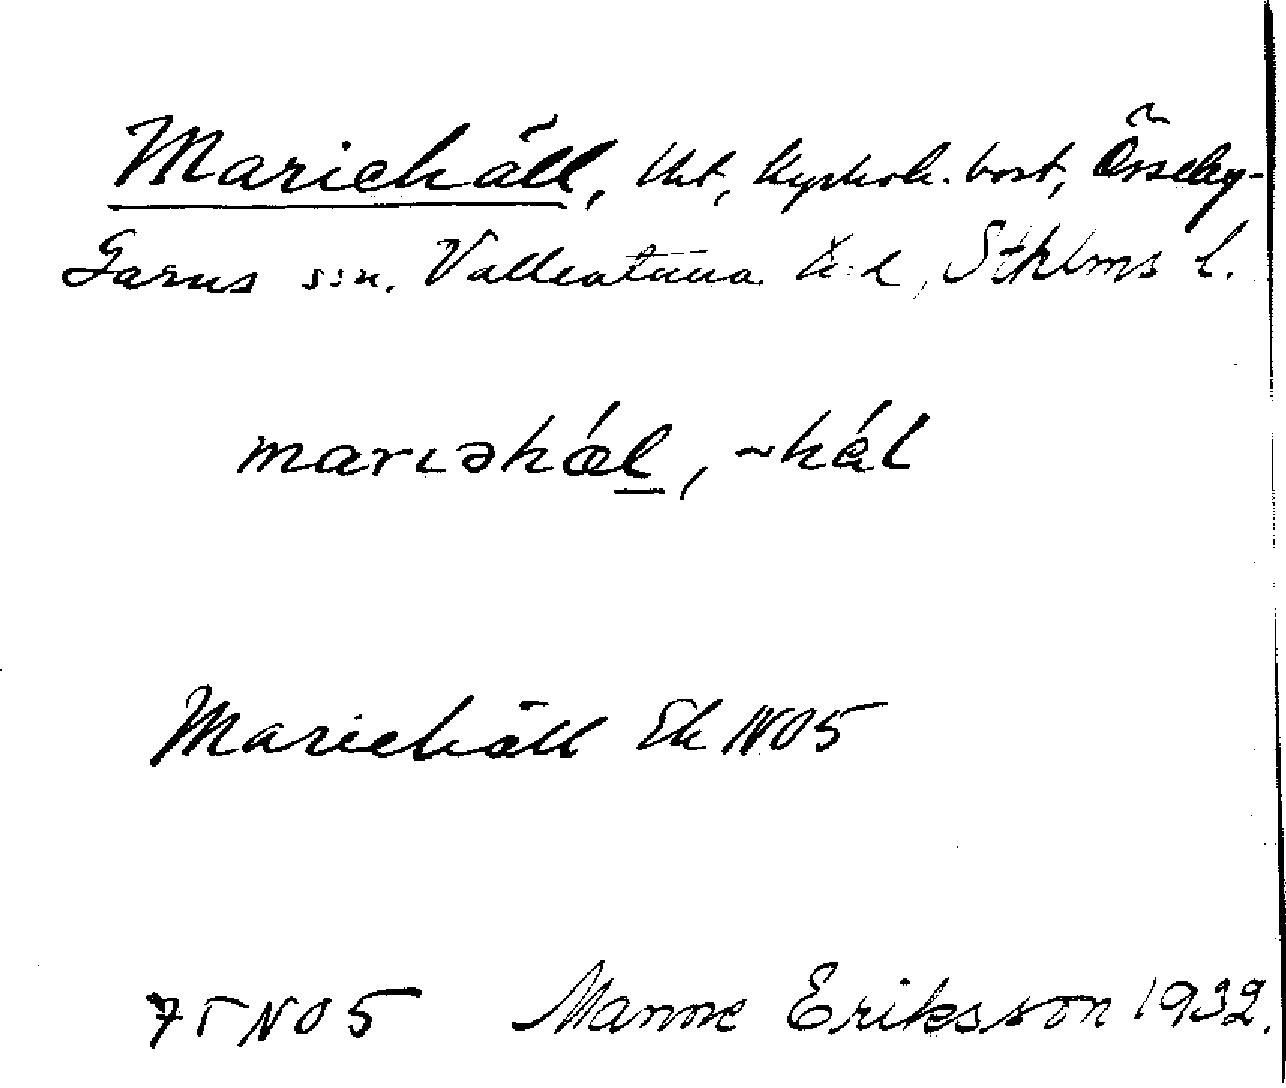 Mariehäll, lht, kyrkoh. bost, Össeby-
Garns ssn. Vallentuna h:d, Sthlms l.
marıəhǽl, ~hál
Mariehäll Ek NO5
75 NO 5 Manne Eriksson 1932.